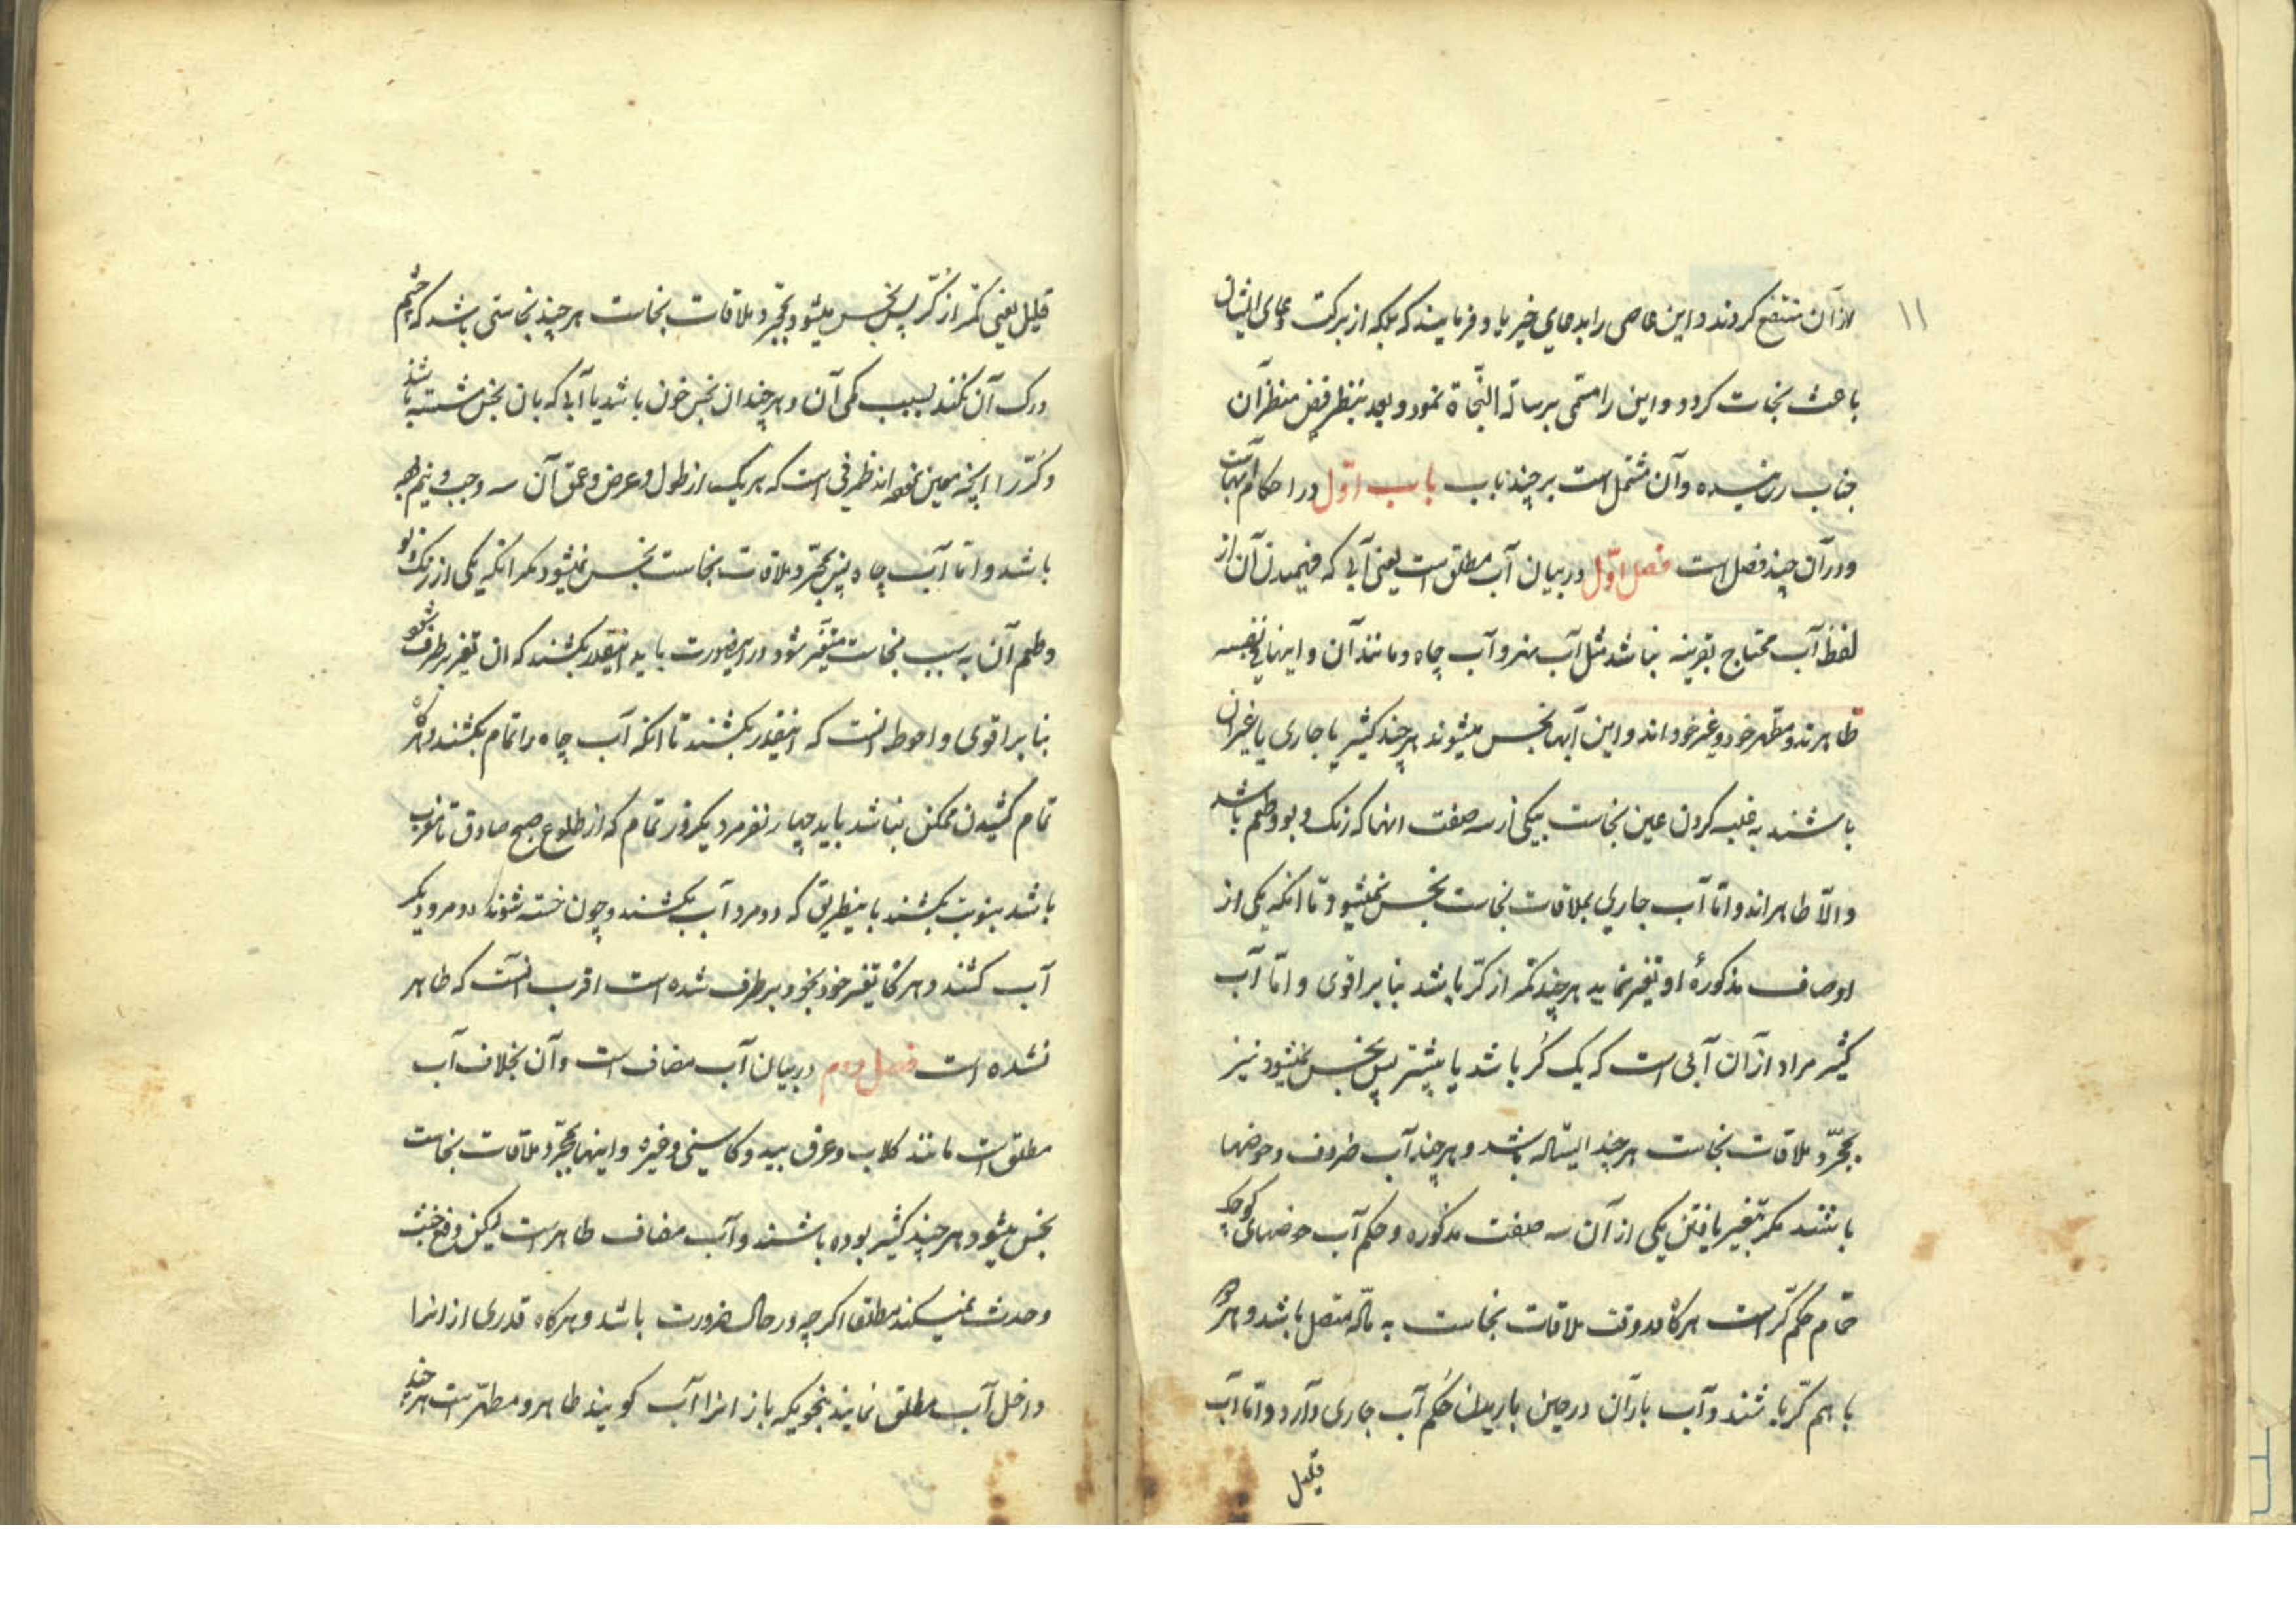 ۱۱
از آن منتفع کردند و این عاصی را بدعای خیر یاد فرمایند که بلکه از برکت دعای ایشان
باعث نجات کردد و این را مسمّی برسالة النّجاة نمود و بعد بنظر فیض منظر آن
جناب رسیده و آن مشتمل است بر چند باب باب اوّل در احکام آبهاست
و در آن چند فصل است فصل اوّل در بیان آب مطلق است یعنی آبی که فهمیدن آن از
لفظ آب محتاج بقرینه نباشد مثل آب نهر و آب چاه و مانند آن و اینها فی نفسه
طاهرند و مطهر خود و غیر خود اند و این آبها نجس میشوند هر چند کثیر یا جاری یا غیر آن
باشند به غلبه کردن عین نجاست بیکی از سه صفت انها که رنک و بو و طعم باشد
و الّا طاهراند و امّا آب جاری بملاقات نجاست نجس نمیشود تا انکه یکی از
اوصاف مذکورهٔ او تغیر نماید هر چند کمتر از کرّ باشد بنا بر اقوی و امّا آب
کثیر مراد از آن آبی است که یک کُر باشد یا بیشتر پس نجس نمیشود نیز
بمجرّد ملاقات نجاست هر چند ایستاده باشد و هر چند آب ظروف و حوضها
باشند مکر بتغییر یافتن یکی از آن سه صفت مذکوره و حکم آب حوضهای کوچک
حمّام حکم کرّ است هر کاه در وقت ملاقات نجاست به مادّه متصل باشد و هر کاه
با هم کرّ باشند و آب باران در حین باریدن حکم آب جاری دارد و امّا آب
قلیل
قلیل یعنی کمتر از کُرّ پس نجس میشود بمجرّد ملاقات نجاست هر چند نجاستی باشد که چشم
درک آن نکند بسبب کمی آن و هر چند ان نجس خون باشد یا آبی که بان نجس شسته باشد
و کُرّ را انچه معین نموده اند ظرفی است که هر یک از طول و عرض و عمق آن سه وجب و نیم
باشد و امّا آب چاه پس بمجرّد ملاقات نجاست نجس نمیشود مکر انکه یکی از رنک و بو
و طعم آن به سبب نجاست متغیّر شود در اینصورت باید اینقدر بکشند که ان تغیر برطرف شود
بنا بر اقوی و احوط انست که اینقدر بکشند تا انکه آب چاه را تمام بکشند و اکر
تمام کشیدن ممکن نباشد باید چهار نفر مرد یکروز تمام که از طلوع صبح صادق تا مغرب
باشد بنوبت بکشند باینطریق که دو مرد آب بکشند و چون خسته شوند دو مرد دیکر
آب کشند و هر کاه تغیر خود بخود برطرف شده است اقرب انست که طاهر
نشده است فصل دوم در بیان آب مضاف است و آن بخلاف آب
مطلق است مانند کلاب و عرق بید و کاسنی و غیره و اینها بمجرّد ملاقات نجاست
نجس میشود هر چند کثیر بوده باشند و آب مضاف طاهر است لیکن رفع خبث
و حدث نمیکند مطلقا اکر چه در حال ضرورت باشد و هر کاه قدری از انرا
داخل آب مطلق نمایند بنحویکه باز انرا آب کویند طاهر و مطهّر است هر چند